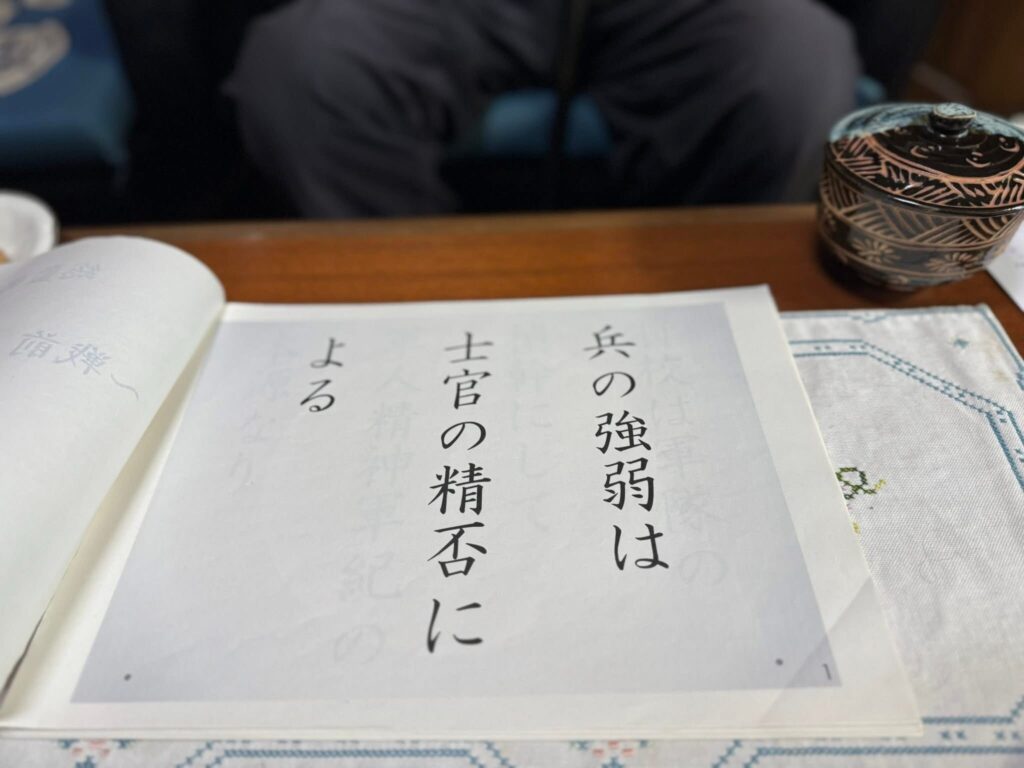 兵の強弱は
士官の精否に
よる
1
戦前